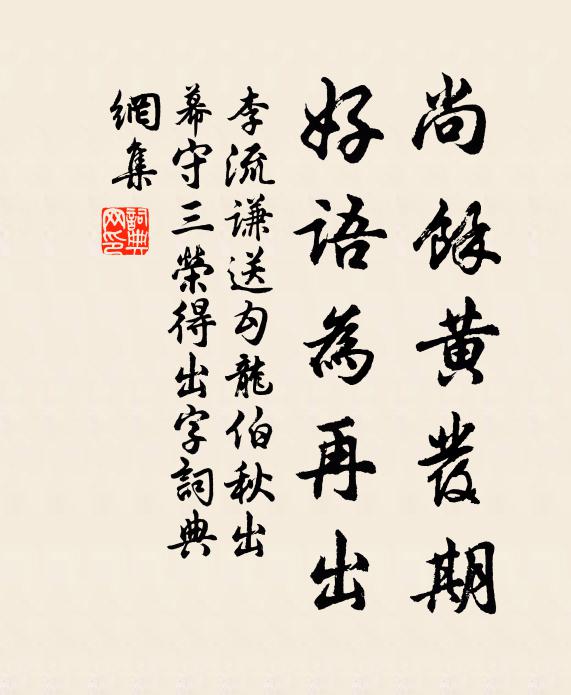 尚餘黃發期
好語為再出
李流謙送勾龍伯秋出
幕守三榮得出字詞典
網集
詞典網印